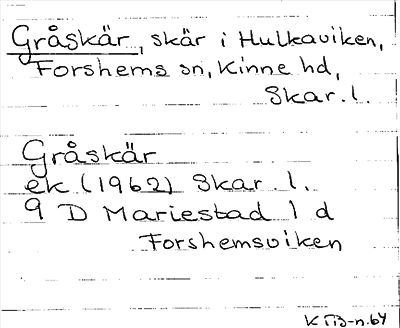 Gråskär, skär i Hulkaviken,
Forshems sn, Kinne hd,
Skar. l.
Gråskär
ek (1962) Skar. l.
9 D Mariestad 1 d
Forshemsviken